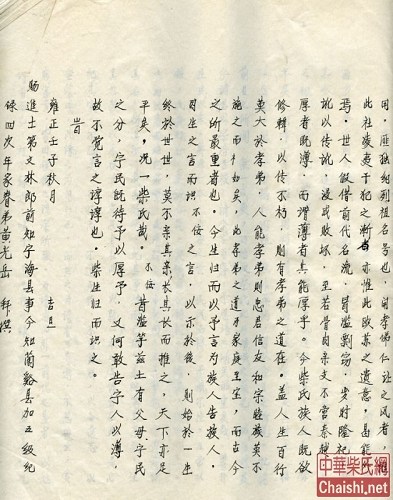 因,匪独纪列祖名号也,闻孝悌仁让之风者,惟
此杜凌夷干犯之渐,亦惟此欧苏之遗意,曷能
焉。世人假借前代名流,冒滥剽窃,岁时隆祀
讹以传讹,没或败坏,至若骨肉亲支不啻秦越
厚者既薄,而谓薄者其能厚乎。今柴氏族人既欲
修辑,以传不朽,则有孝弟之道在。盖人生百行
莫大於孝弟,人能孝弟则忠君信友和宗睦族莫不
施之而卡如矣,此孝弟之道乃家庭至宝,而古今
之所最重者也。今生归而以予言为族人告族人,
因生之言而识不佞之言,以示於後,则始於一生
终於世世,莫不亲其亲长其长而推之,天下亦是
平矣,况一柴氏哉。不佞昔滥竽兹土有父母宁民
之分,宁民既待予以厚予,又何敢告宁人以薄,
故不觉言之谆谆也。柴生归而识之。
旹
雍正壬子秋月 吉旦
赐进士第文林郎前知宁海县事今知蘭谿县加五级纪
録四次年家眷弟黄光岳 拜撰
中華柴氏網
Chaishi.net